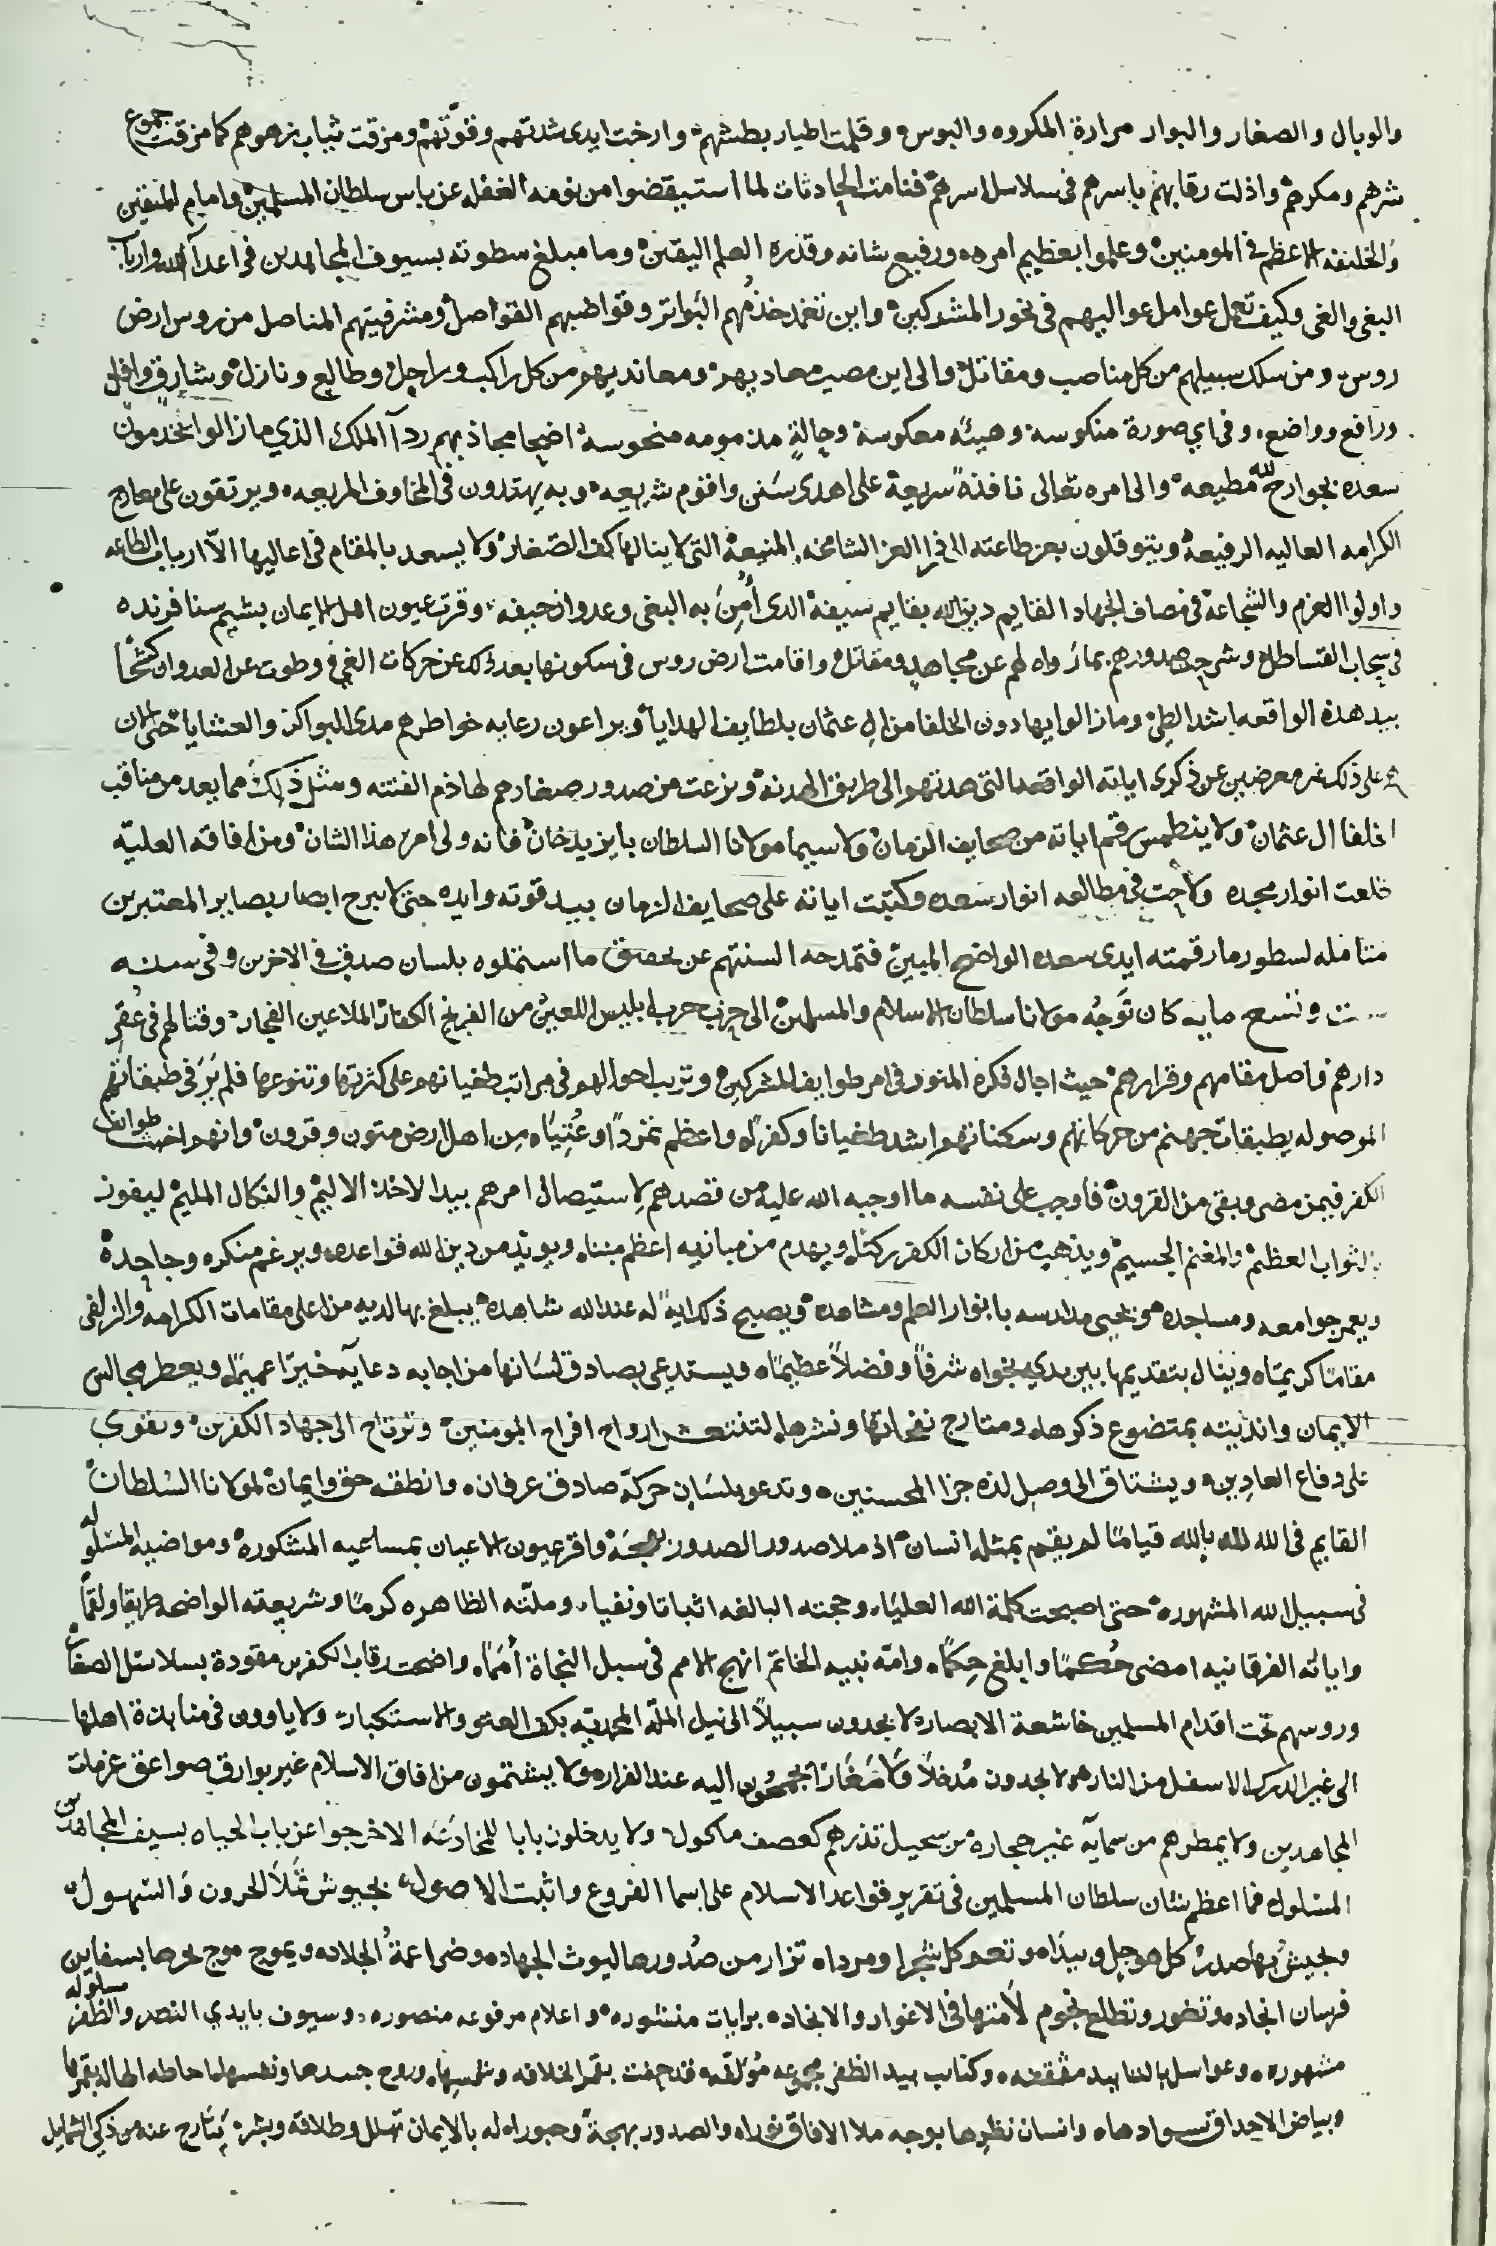 والوبال والصغار والبوار مرارة المكروه والبوس وقلمت اظفار بطشهم وارخت ايدى شدتهم وقوتهم ومزقت ثياب زهوهم كما مزقت جموع
شرهم ومكرهم واذلت رقابهم باسرهم فى سلاسل اسرهم فنامت الحادثات لما استيقضوا من نومة الغفله عن باس سلطان المسلمين وامام المتقين
والخليفه الاعظم فى المومنين وعلموا بعظيم امره ورفيع شانه وقدره العلم اليقين وما مبلغ سطوته بسيوف المجاهدين فى اعدآ الله وارباب
البغى والغى وكيف تعمل عوامل عواليهم فى نحور المشركين واين تغمد خذمهم البواتر وقواضبهم الفواصل ومشرفيتهم المناصل من روس ارض
روس ومن سلك سبيلهم من كل مناصب ومقاتل والى اين مصير معاديهم ومعانديهم من كل راكب وراجل وطالع ونازل وشارق وافل
ورافع وواضع وفى اي صورة منكوسه وهيئه معكوسة وحالة مذمومه منحوسه اضحا مجاذبهم ردآ الملك الذي مازالوا يخدمون
سعده بجوارح لله مطيعه والى امره تعالى نافذة سريعة على اهدى سنن واقوم شريعه وبه يهتدون فى المخاوف المريعه ويرتقون على معارج
الكرامه العاليه الرفيعة ويتوقلون بعز طاعته الى ذرا العز الشامخه المنيعة التى لا ينالها كف الصغار ولا يسعد بالمقام فى اعاليها الا ارباب الطاعه
واولوا العزم والشجاعة فى مصاف الجهاد القايم دين الله بقايم سيفه الذى أمن به البغى وعدوانه وحيفه وقرت عيون اهل الايمان بشيم سنا فرنده
فى سحاب القساطل وشرحت صدورهم بما رواه لهم عن مجاهد ومقاتل واقامت ارض روس فى سكونها بعد ذلك عن حركات الغي وطوت عن العدوان كشحا
بيد هذه الواقعه اشد الطي وما زالوا يهادون الخلفا من ال عثمان بلطايف الهدايا ويراعون رعايه خواطرهم مدى البواكر والعشايا حتى الان
هم على ذلك غير معرضين عن ذكرى اياته الواقعه التى هدتهم الى طريق الهدنه ونزعت من صدور صغارهم لهاذم الفتنه ومثل ذلك مما يعد من مناقب
الخلفا ال عثمان ولا ينطمس رقم اياته من صحايف الزمان ولا سيما مولانا السلطان بايزيد خان فانه ولى امر هذا الشان ومن افاقه العليه
طلعت انوار مجده ولاحت فى مطالعه انوار سعده وكتبت اياته على صحايف الزمان بيد قوته وايده حتى لا يبرح ابصار بصاير المعتبرين
متامله لسطور ما رقمته ايدى سعده الواضح المبين فتمدحه السنتهم عن تحقيق ما استملوه بلسان صدق فى الاخرين وفى سنه
ست وتسع مايه كان توجه مولانا سلطان الاسلام والمسلمين الى حرب حزب ابليس اللعين من الفرنج الكفار الملاعين الفجار وقتالهم فى عقر
دارهم واصل مقامهم وقرارهم حيث اجال فكره المنور فى امر طوايف المشركين وترتيب احوالهم فى مراتب طغيانهم على كثرتها وتنوعها فلم ير فى طبقاتهم
الموصوله بطبقات جهنم من حركاتهم وسكناتهم اشد طغيانا وكفرا واعظم تمردا وعتيا من اهل ارض متون وقرون وانهم اخبث طوايف
الكفر فيمن مضى وبقى من القرون فاوجب على نفسه ما اوجبه الله عليه من قصدهم لاستيصال امرهم بيد الاخذ الاليم والنكال المليم ليفوز
بالثواب العظيم والمغنم الجسيم ويذهب من اركان الكفر ركنا ويهدم من مبانيه اعظم مبناه ويويد من دين الله قواعده ويرغم منكره وجاحدة
ويعمر جوامعه ومساجده ويحيى مدارسه بانوار العلم ومشاهده ويصبح ذلك اية له عند الله شاهده يبلغ بها لديه من اعلى مقامات الكرامه والزلفى
مقاما كريما وينال بتقديمها بين يدي نجواه شرفا وفضلا عظيما ويستدعى بصادق لسانها من اجابه دعايه خيرا عميما ويعطر مجالس
الايمان وانديته بمتضوع ذكرها ومتارج نفحاتها ونشرها لتنتعش ارواح افراح المومنين وترتاح الى جهاد الكفرين وتقوى
على دفاع العادين ويشتاق الى وصل لذه جزا المحسنين وتدعو بلسان حركة صادق عرفانه وانطقه حق وايمان لمولانا السلطان
القايم فى الله لله بالله قياما لم يقم بمثله انسان اذ ملا صدور الصدور بهجة واقر عيون الاعيان بمساعيه المشكوره ومواضيه المسلوله
فى سبيل الله المشهوره حتى اصبحت كلمة الله العلياء وحجته البالغه اثباتا ونفيا وملته الظاهره كرما وشريعته الواضحه طريقا ولقما
واياته الفرقانيه امضى حكما وابلغ حكما وامه نبيه الخاتم انهج الامم فى سبل النجاة أمما واضحت رقاب الكفرين مقودة بسلاسل الصغار
وروسهم تحت اقدام المسلمين خاشعة الابصار لا يجدون سبيلا الى نيل المله المحمديه بكف العتو والاستكبار ولا ياوون فى منابذة اهلها
الى غير الدرك الاسفل من النار ولا يجدون مدخلا ولا مغارا يجمحون اليه عند الفرار ولا يشتمون من افاق الاسلام غير بوارق صواعق عزمات
المجاهدين ولا يمطرهم من سمايه غير حجاره من سجيل تذرهم كعصف ماكول ولا يدخلون بابا للمخادعه الا خرجوا عن باب الحياه بسيف المجاهدين
المسلول فما اعظم شان سلطان المسلمين فى تقرير قواعد الاسلام على اسما الفروع واثبت الاصول بجيوش تملا الحزون والسهول
وتجيش بها صدر كل هوجل وبيداه وتعم كل شجرا ومرداه تزار من صدورها ليوث الجهاد وضراعمة الجلاد ويموج موج بحرها بسفاين
فرسان انجاده وتضور وتطلع نجوم لأمتها فى الاغوار والانجاد برايات منشوره واعلام مرفوعه منصوره وسيوف بايدي النصر والظفر مسلوله
مشهوره وعواسل بالتاييد مثقفه وكتايب بيد الظفر مجموعه مؤلفه قد حفت بقمر الخلافه وشمسها وروح جسدها ونفسها احاطه الهاله بقمرها
وبياض الاحداق بسوادها وانسان نظرها بوجه ملا الافاق نورا والصدور بهجة وحبورا له بالايمان تهلل وطلاقه وبشر يتارج عنه من ذكي الشمايل